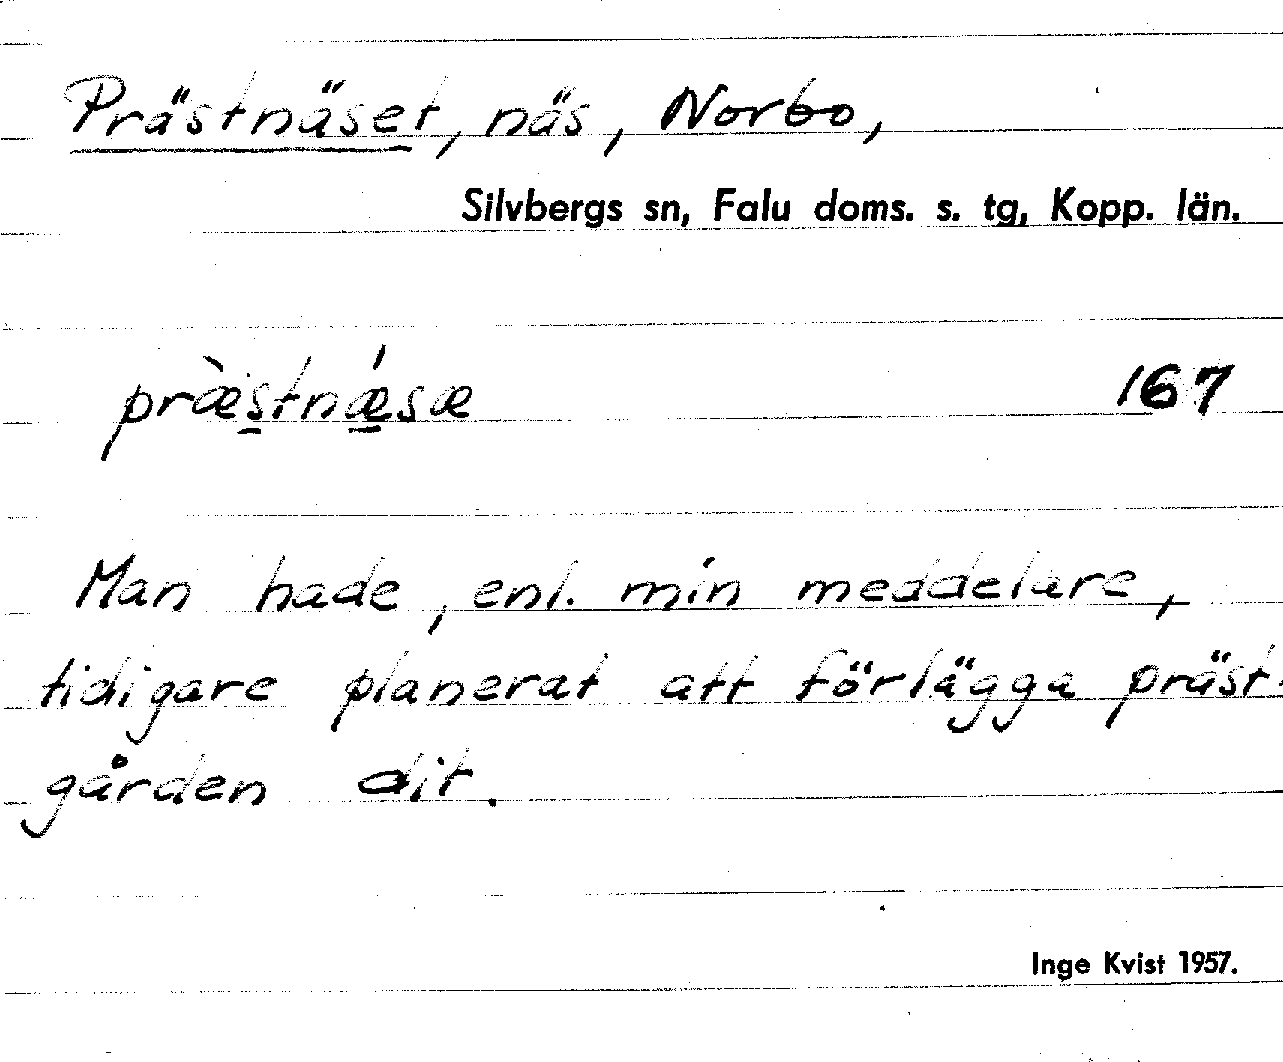 Prästnäset, näs, Norbo,
Silvbergs sn, Falu doms. s. tg, Kopp. län.
præ̀stnǽsæ 167
Man hade, enl. min meddelare,
tidigare planerat att förlägga präst-
gården dit.
Inge Kvist 1957.